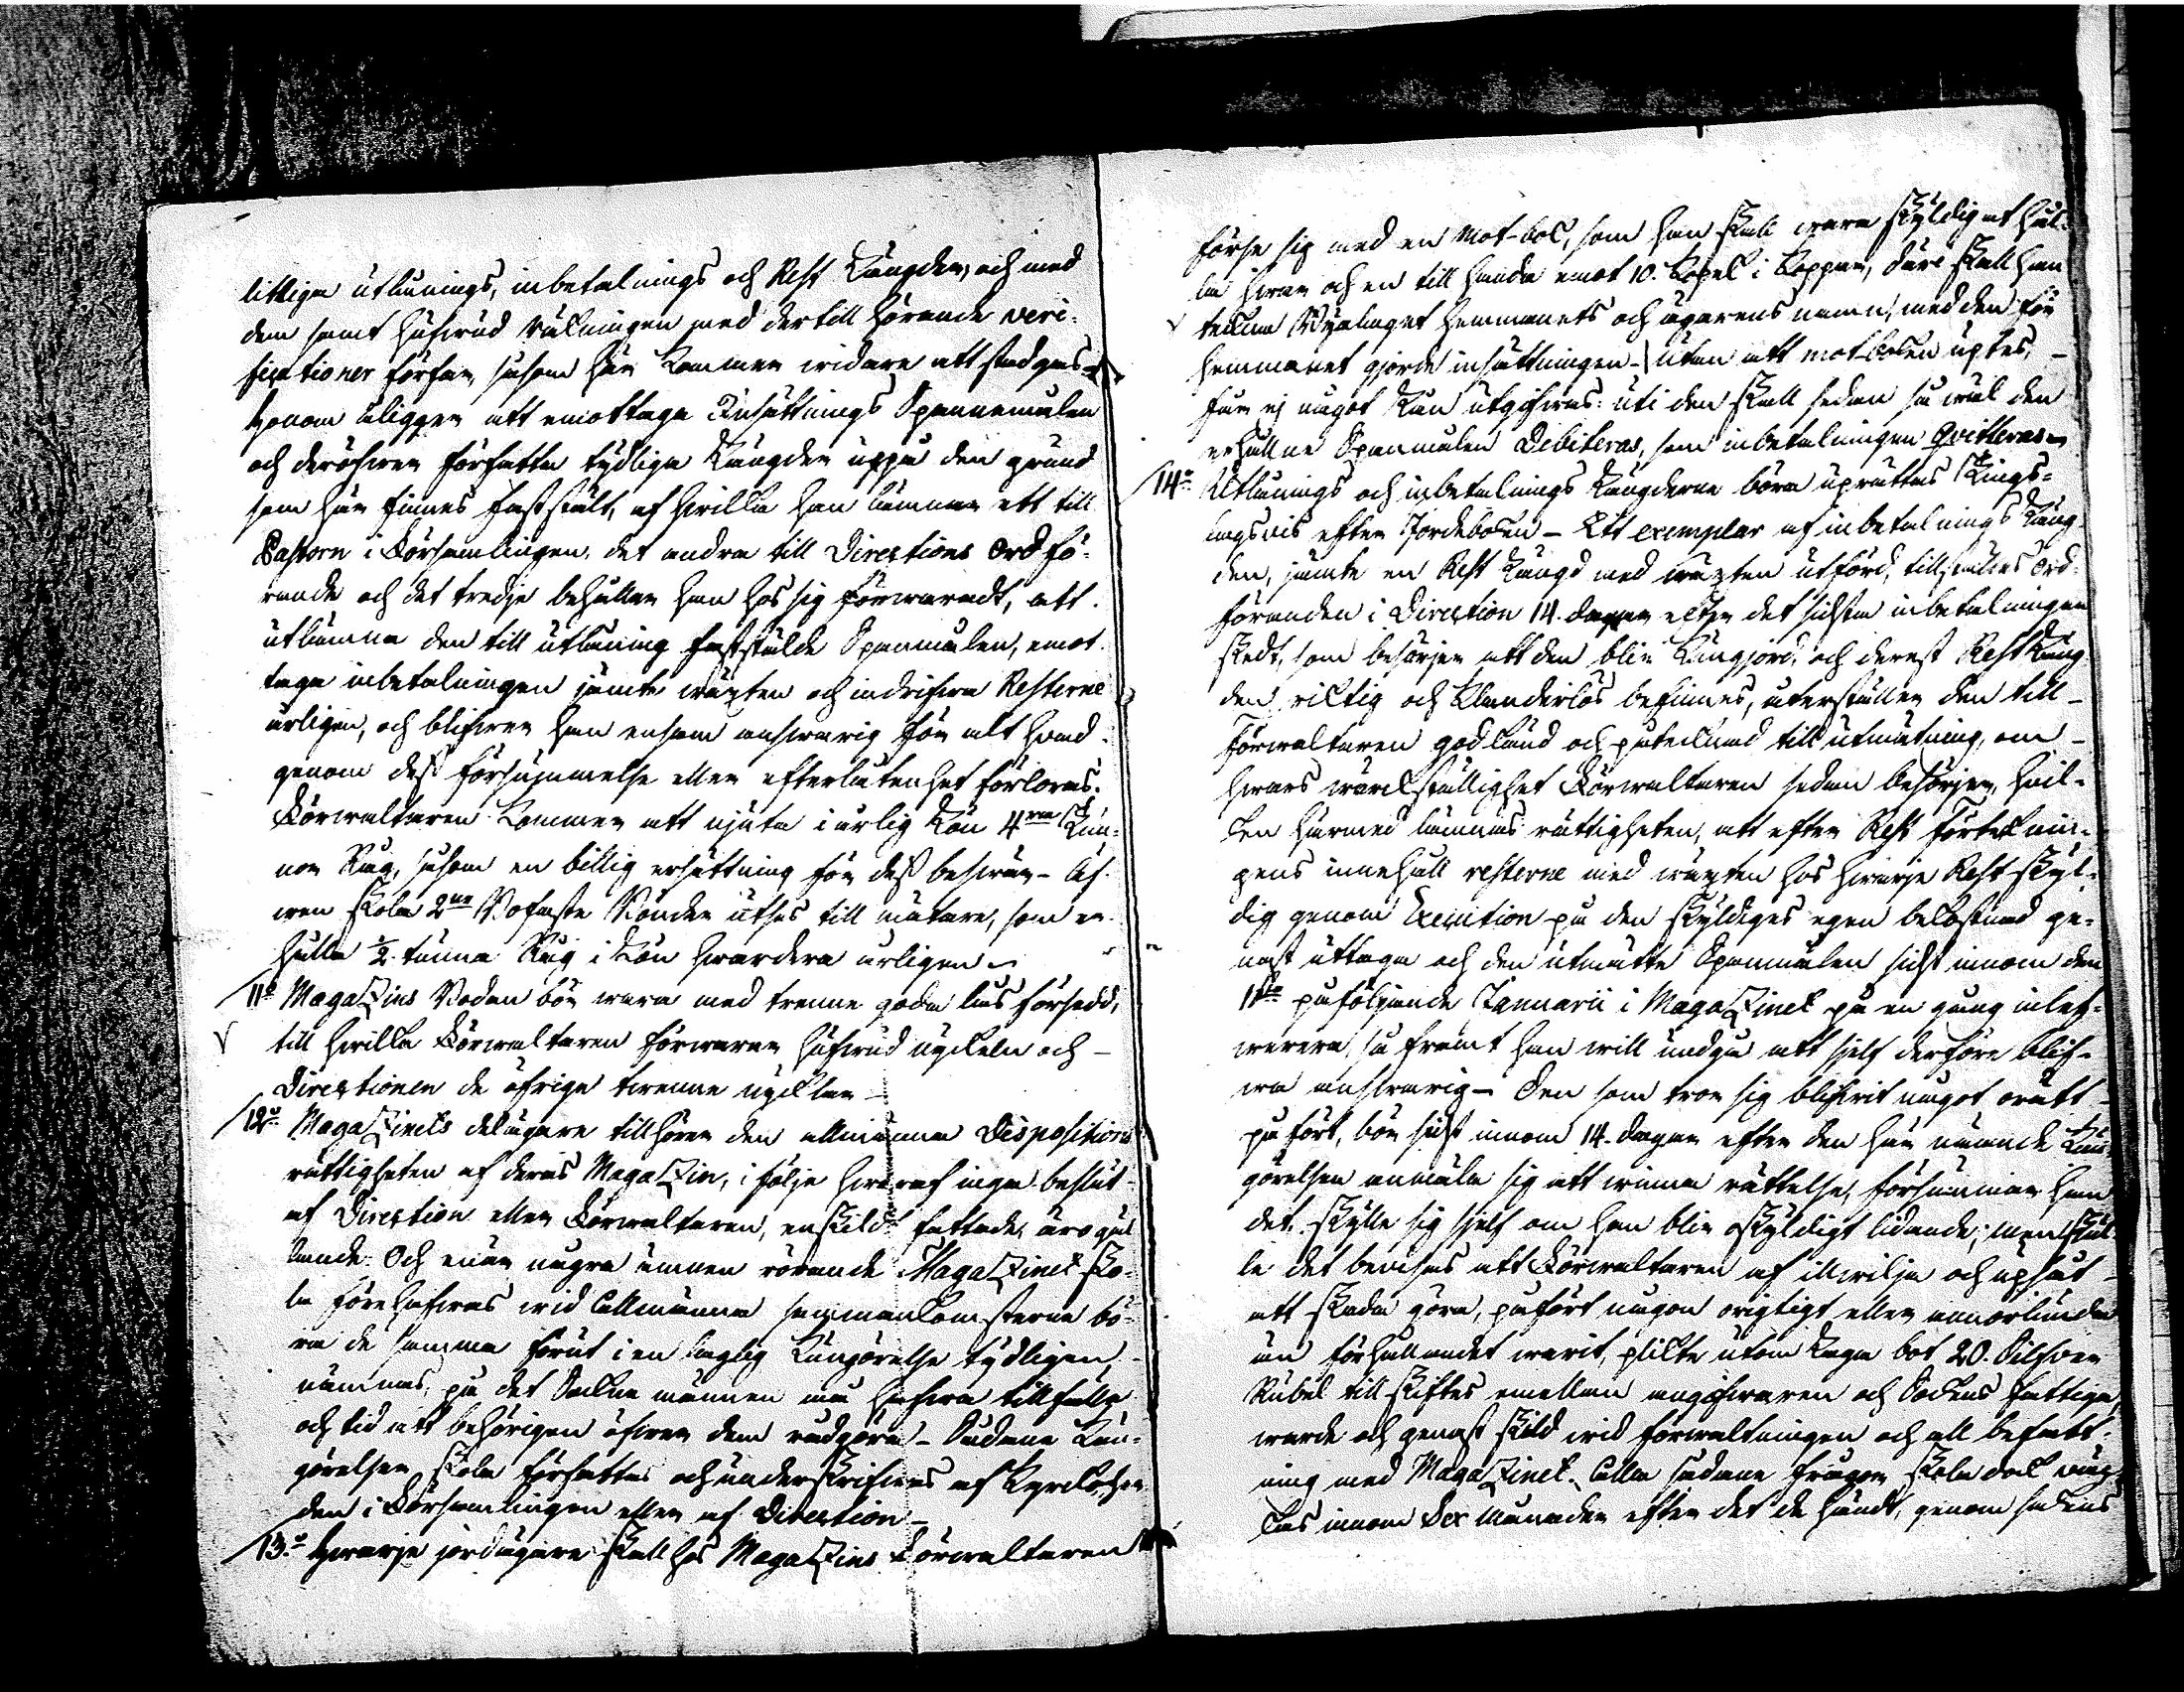 litliga utlånings, inbetalnings och Rest Längder, och med
dem samt hufwud räkningen med dertill hörande veri-
ficationer förfar, såsom här kommer widare att stadgas
honom åligger att emottaga Insättnings Spannemålen
och deröfwer författa tydliga Längder uppå den grund
som här finnes faststält, af hwilka han lämnar ett till
Pastorn i Församlingen, det andra till Directions Ordfö-
rande och det tredje behåller han hos sig förwaradt, att
utlämna den till utlåning faststälde Spanmålen, emot
taga inbetalningen jämte wäxten och indrifwa Resterne
årligen, och blifwer han ensam answarig för alt hwad
genom dess försummelse eller efterlåtenhet förloras.
Förwaltaren kommer att njuta i årlig Lön 4ra Tun-
nor Råg, såsom en billig ersättning för dess beswär - Äf-
wen skola 2ne Bofaste Bönder utses till mätare, som er-
hålla ½ tunna Råg i Lön hwardera årligen
11o Magazins Boden bör wara med trenne goda lås försedd,
till hwilka Förwaltaren förwarar hufwud nyckeln och -
Directionen de öfriga twenne nycklar -
12o Magazinets delägare tillhörer den allmänna Dispositions
rättigheten af deras Magazin, i följe hwaraf inga beslut
af Direction eller Förwaltaren, enskildt fattade, äro gäl
lande. Och enär några ämnen rörande Magazinet sko-
la förehafwas wid Allmänna sammankomsterna bö-
ra de samma förut i en laglig Kungörelse tydligen
nämnas, på det Sockne männen må hafwa tillfälle
och tid att behörigen öfwer dem rådgöra - Sådana Kun-
görelser skola författas och underskrifwas af Kyrckoher-
den i Församlingen eller af Direction -
13o Hwarje jordägare skall hos Magazins Förwaltaren
förse sig med en Mot-bok, som han skall wara skyldig at hål-
la hwar och en till handa emot 10. Kopek i Koppar, Där skall han
teckna Byalaget hemmanets och ägarens namn, med den för
hemmanet gjorde insättningen - utan att mot-boken uptes, -
får ej något Lån utgifwas: uti den skall sedan så wäl den
erhållne Spanmålen Debiteras, som inbetalningen Qvitteras
14o Utlånings och inbetalnings Längderne böra uprättas
efter Jordeboken - Ett exemplar af inbetalnings Läng
den, jämte en Rest Längd med wäxten utförd, tillställes Ord-
föranden i Direction 14. dagar efter det sidsta inbetalningen
skedt, som besörjer att den blir Kungjord, och derest Rest Läng
den riktig och Klanderlös befinnes, återställer den till -
Förwaltaren godkänd och påtecknad till utmätning, om -
hwars wärckställighet Förwaltaren sedan besörjer, hwil-
ken härmed lämnas rättigheten, att efter Rest förteknin-
gens innehåll resterne med wäxten hos hwarje Rest skyl-
dig genom Execution på den skyldiges egen bekostnad ge-
nast uttaga och den utmätte Spanmålen sidst innom den
1sta påföljande Januarii i Magazinet på en gång inlef-
werera, så framt han will undgå att sjelf derföre blif-
wa answarig - Den som tror sig blifwit något orätt -
påfört, bör sidst innom 14. dagar efter den här nämnde Kun
görelsen anmäla sig att winna rättelse, försummar han
det, skylle sig sjelf om han blir oskyldigt lidande; men skul
le det bewisas att Förwaltaren af illwilja och upsåt -
att skada göra, påfört någon origtigt eller annorlunda
än förhållandet warit, plikte utom Laga bot 20. Silfwer
Rubel till skiftes emellan angifwaren och Sockens fattiga,
warde och genast skild wid förwaltningen och all befatt-
ning med Magazinet. Alla sådana frågor skola dock wäc-
kas innom Sex Månader efter det de händt, genom Sockens